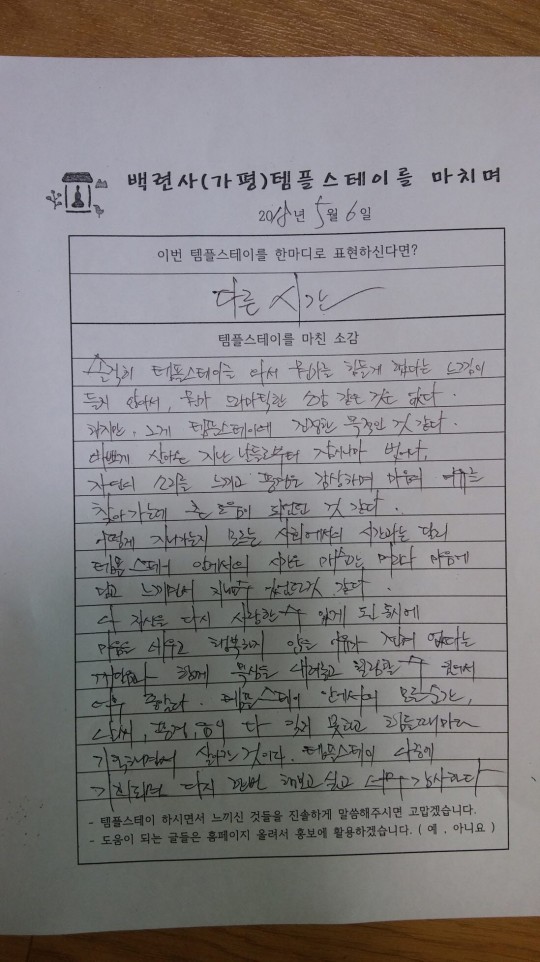 백련사(가평)템플스테이를 마치며
2018년 5월 6일
이번 템플스테이를 한마디로 표현하신다면?
다른 시간
템플스테이를 마친 소감
솔직히 템플스테이를 와서 무언가를 힘들게 했다는 느낌이
들지 않아서, 뭔가 드라마틱한 소감 같은 것은 없다.
하지만, 그게 템플스테이에 진정한 목적인 것 같다.
바쁘게 살아온 지난 날들로부터 잠시나마 벗어나,
자연의 소리를 느끼고 풍경을 감상하며 마음의 여유를
찾아가는데 큰 도움이 되었던 것 같다.
어떻게 지나가는지 모르는 사회에서의 시간과는 달리
템플스테이 안에서의 시간은 매순간 마다 마음에
담고 느끼면서 지낼 수 있었던것 같다.
나 자신을 다시 사랑할 수 있게 된 동시에
마음을 비우고 행복하지 않을 이유가 전혀 없다는
함께 묵상을 수 있어서
너무 좋았다. 템플스테이 안에서의 모든 순간,
날씨, 풍경, 등이 다 잊지 못하고 힘들때마다
것이다. 템플스테이 나중에
기회되면 다시 한번 해보고 싶고 너무 감사하다
- 템플스테이 하시면서 느끼신 것들을 진솔하게 말씀해주시면 고맙겠습니다.
- 도움이 되는 글들은 홈페이지 올려서 홍보에 활용하겠습니다. ( 예 , 아니요 )